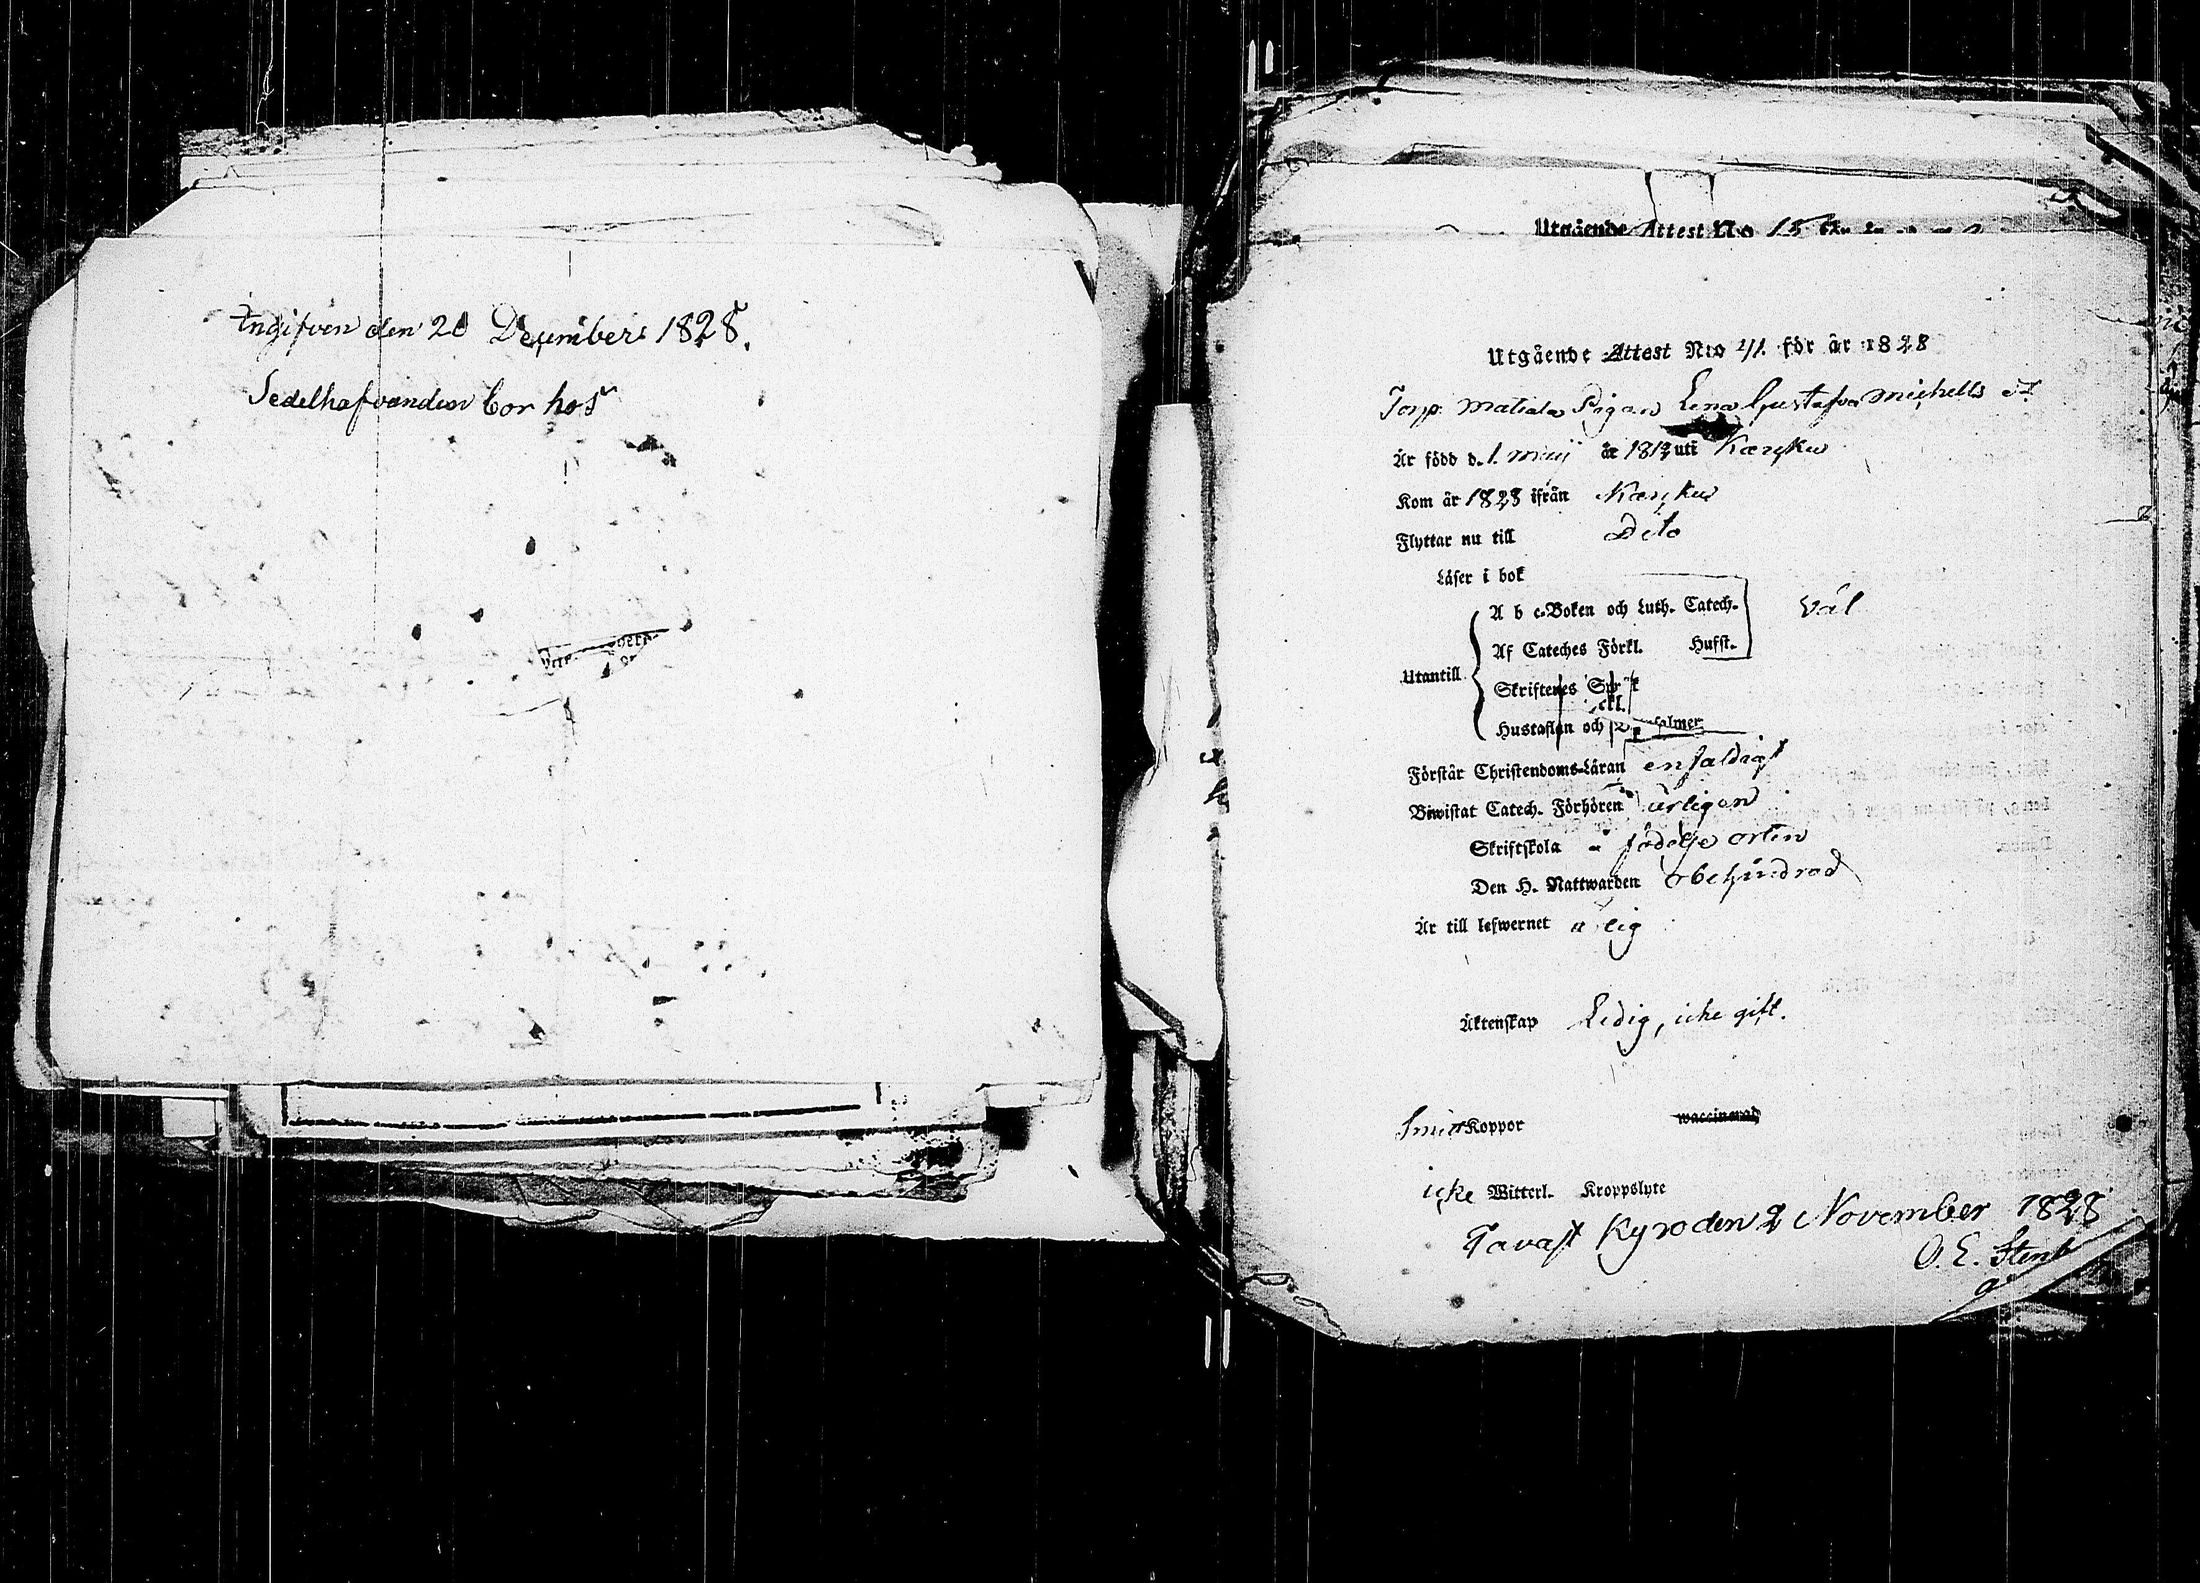 Ingifven den 20 December 1828.
Sedelhafvanden bor hos
Utgående Attest No 15 för år
Utgående Attest N:o 41. för år 1828
Torp. Matiala Pigan Lena Gustafva Michells dr
Är född d. 1. Maij år 1812 uti Karkku
Kom år 1828 ifrån Karkku
Flyttar nu till Dito
Läser i bok
A b c-Boken och Luth. Catech. väl
Af Cateches Förkl. Hufst.
Utantill
Skriftenes Språk
Hustaflan och psalmer
Förstår Christendoms-Läran enfaldigt
Biwistat Catech. Förhören årligen
Skriftskola i födelse orten
Den H. Nattwarden obehindrad
Är till lefwernet ärlig
Äktenskap Ledig, icke gift.
Koppor waccinerad
icke Witterl. Kroppslyte
Tavast Kyro den 2 November 1828
O. E. Stenb